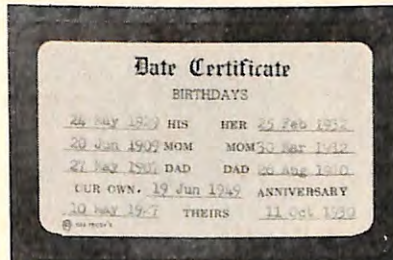 Date Certificate
BIRTHDAYS
24 May 1929 HIS HER 25 Feb 1932
20 Jun 1909 MOM MOM 30 Mar 1912
27 May 1907 DAD DAD 26 Aug 1910
OUR OWN. 19 Jun 1949 ANNIVERSARY
10 May 1927 THEIRS 11 Oct 1930